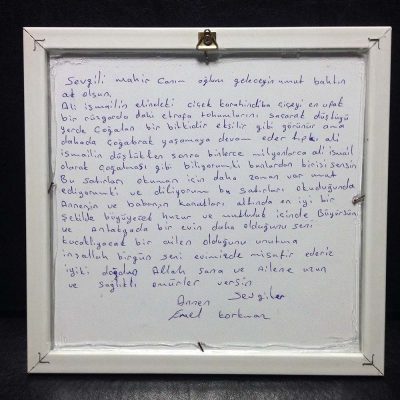 Sevgili mahir canım oğlum geleceğin umut bahtın
ak olsun.
Ali ismailin elindeki çiçek karahindiba çiçeği en ufak
bir rüzgarda dahi etrafa tohumlarını saçarak düştüğü
yerde çoğalan bir bitkidir eksilir gibi görünür ama
dahada çoğalarak yaşamaya devam eder tıpkı ali
ismailin düştükten sonra binlerce milyonlarca ali ismail
olarak çoğalması gibi biliyorumki bunlardan birisi sensin
Bu satırları okuman için daha zaman var umut
ediyorumki ve diliyorum bu satırları okuduğunda
Annenin ve babanın kanatları altında en iyi bir
şekilde büyüyecek huzur ve mutluluk içinde Büyürsün
ve Antakyada bir evin daha olduğunu seni
kucaklıyacak bir ailen olduğunu unutma
inşallah birgün seni evimizde misafir ederiz
iyiki doğdun Allah sana ve Ailene uzun
ve sağlıklı ömürler versin
Annen Sevgiler
Emel Korkmaz